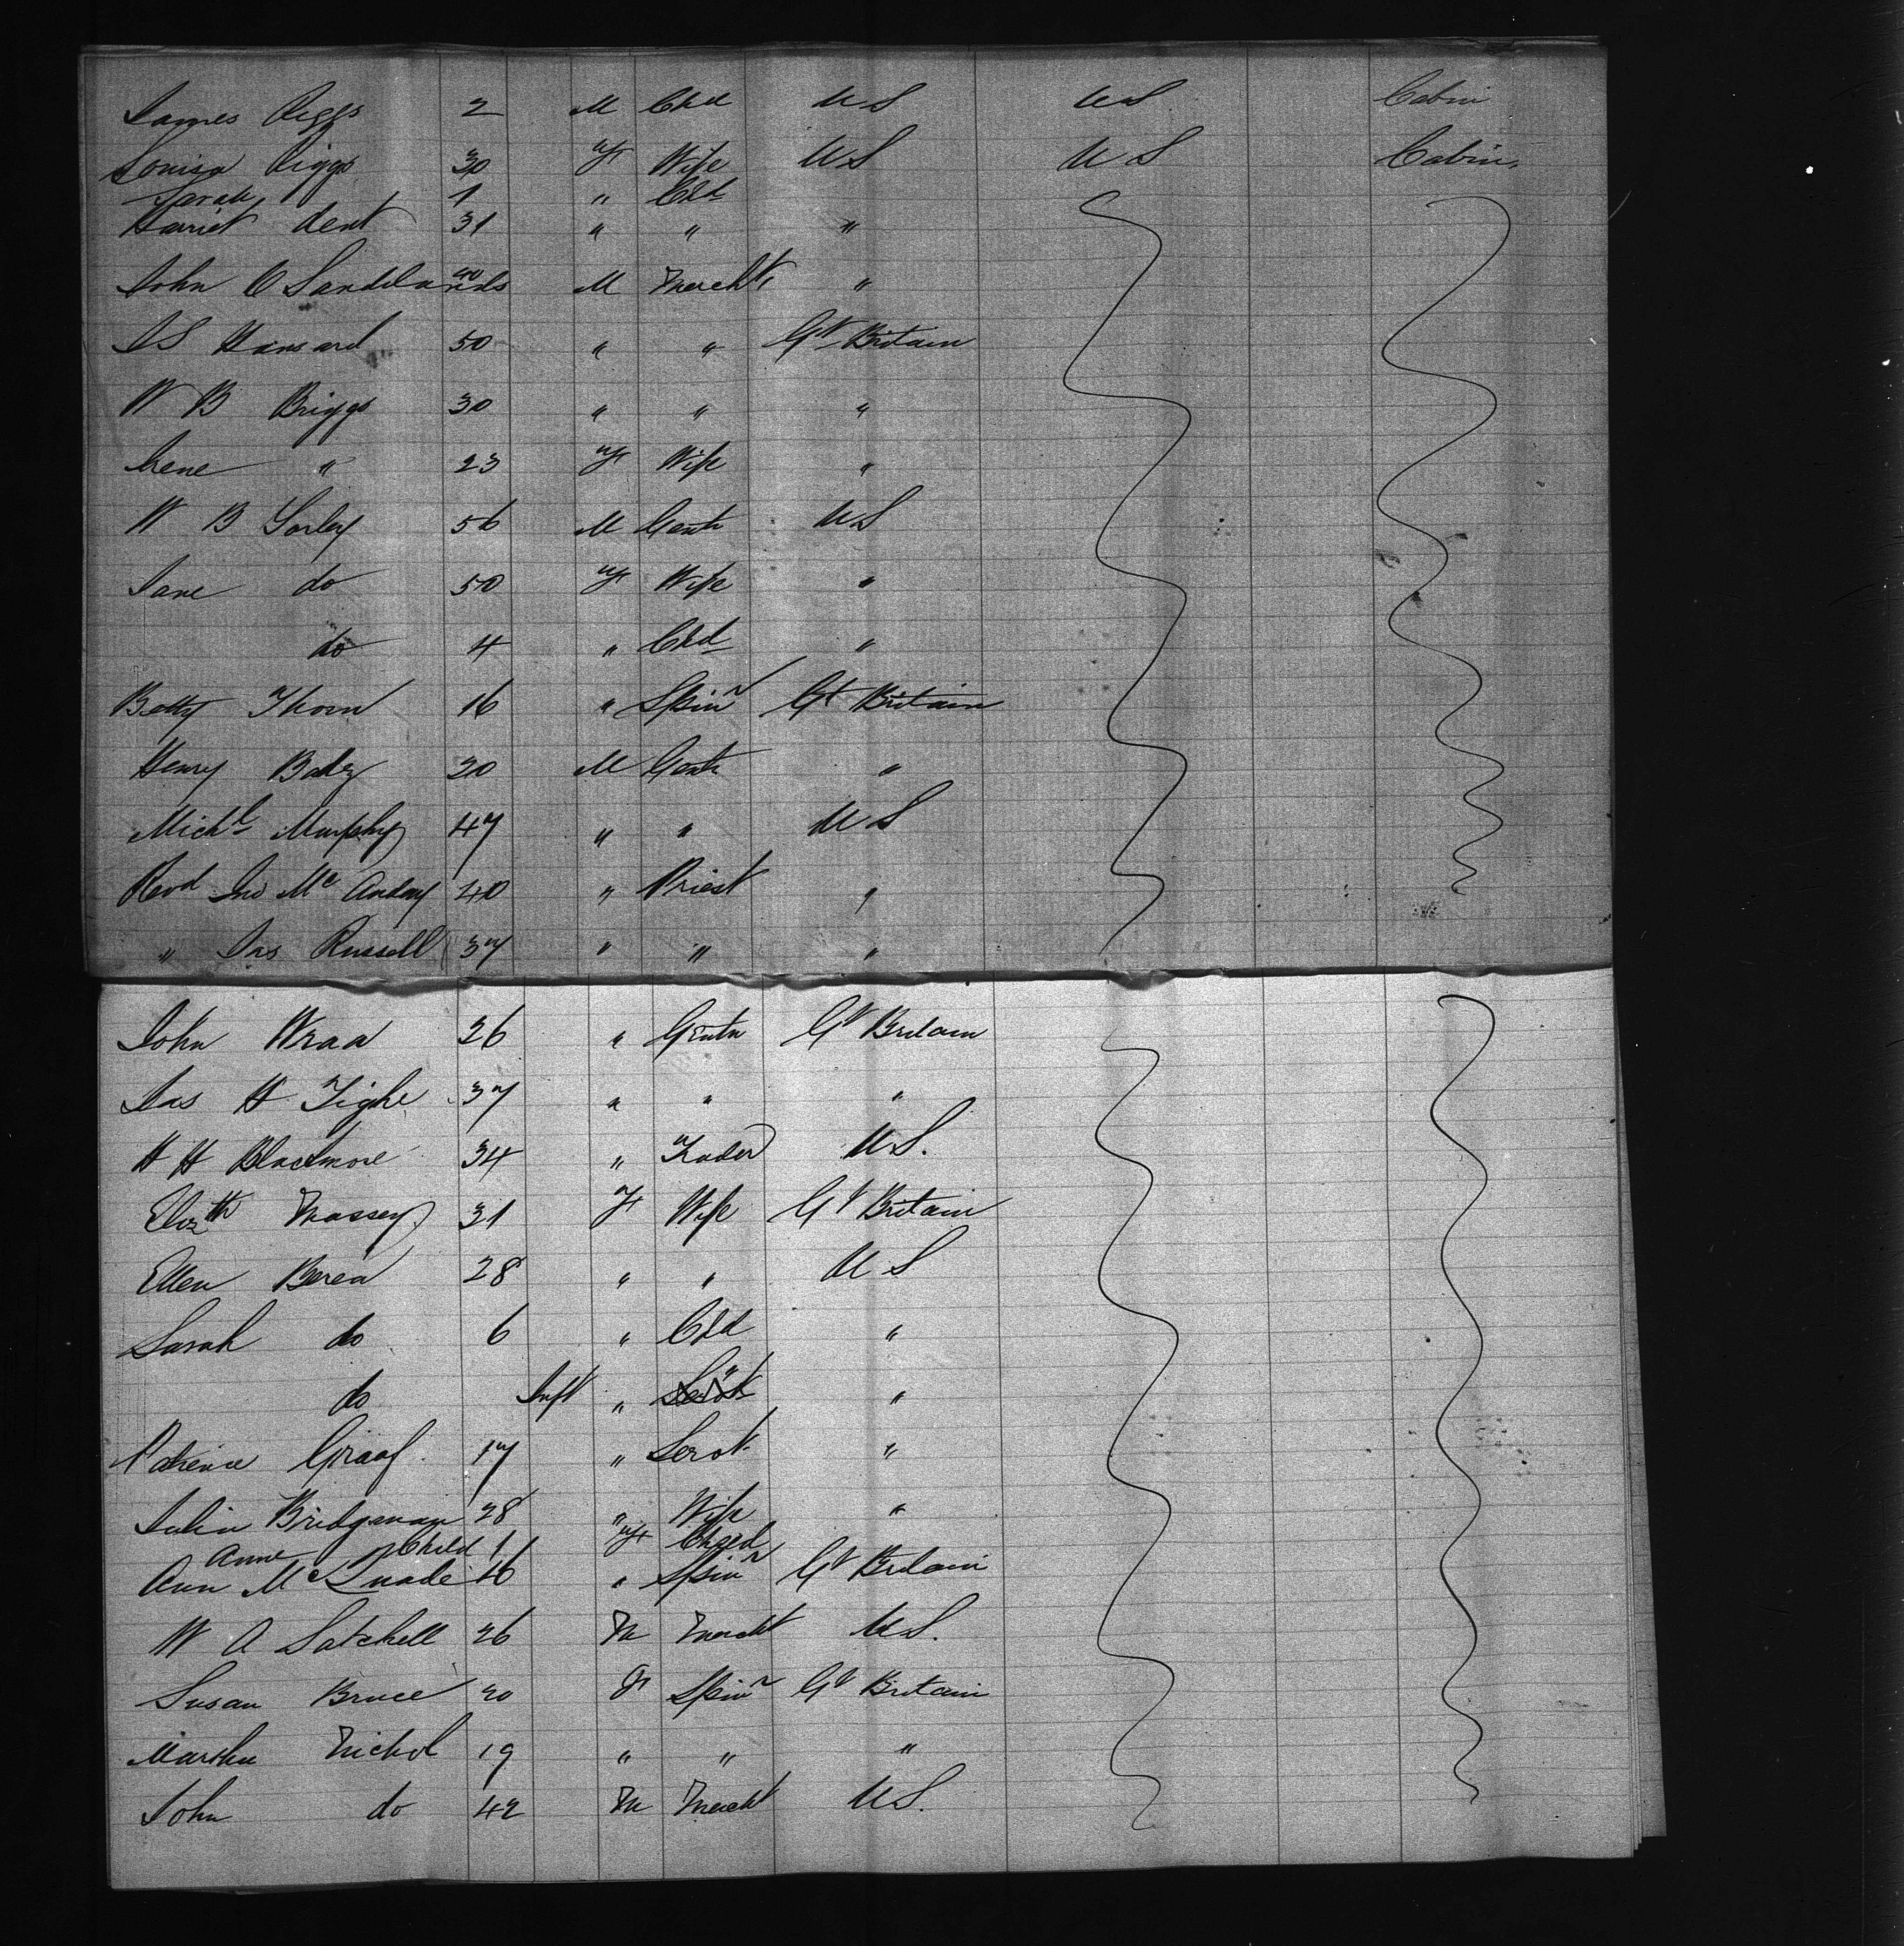 James Riggs 2 M Chd U S U S Cabin
Louisa Riggs 30 F Wife U S U S Cabin
Sarah 1 " Chd
Harriet Dent 31 " " "
John C Sandilands 40 M Mercht "
J S Hansard 50 " " Gt Britain
W B Briggs 30 " " "
Irene " 23 F Wife "
W B Sorley 56 M Gentn U S
Jane do 50 F Wife "
do 4 " Chd "
Betty Thorn 16 " Spinr Gt Britain
Henry 20 M Gentn "
Michl Murphy 47 " " U S
Revd Jno Mc 40 " Priest "
" Jas Russell 37 " " "
John 26 " Gentn Gt Britain
Jas H Tighe 37 " " "
H H Blackmore 34 " Trader U S.
Elizth Massey 31 F Wife Gt Britain
Ellen 28 " " U S
Sarah do 6 " Chd "
do Inft " " "
Patience Graaf 17 " Servt "
Julia Bridgeman 28 " Wife "
Anne Child 1 F Child
Ann McQuade 16 " Spinr Gt Britain
W A Satchell 26 M Mercht U S.
Susan Bruce 20 F Spinr Gt Britain
Martha Nichol 19 " " "
John do 42 M Mercht U S.